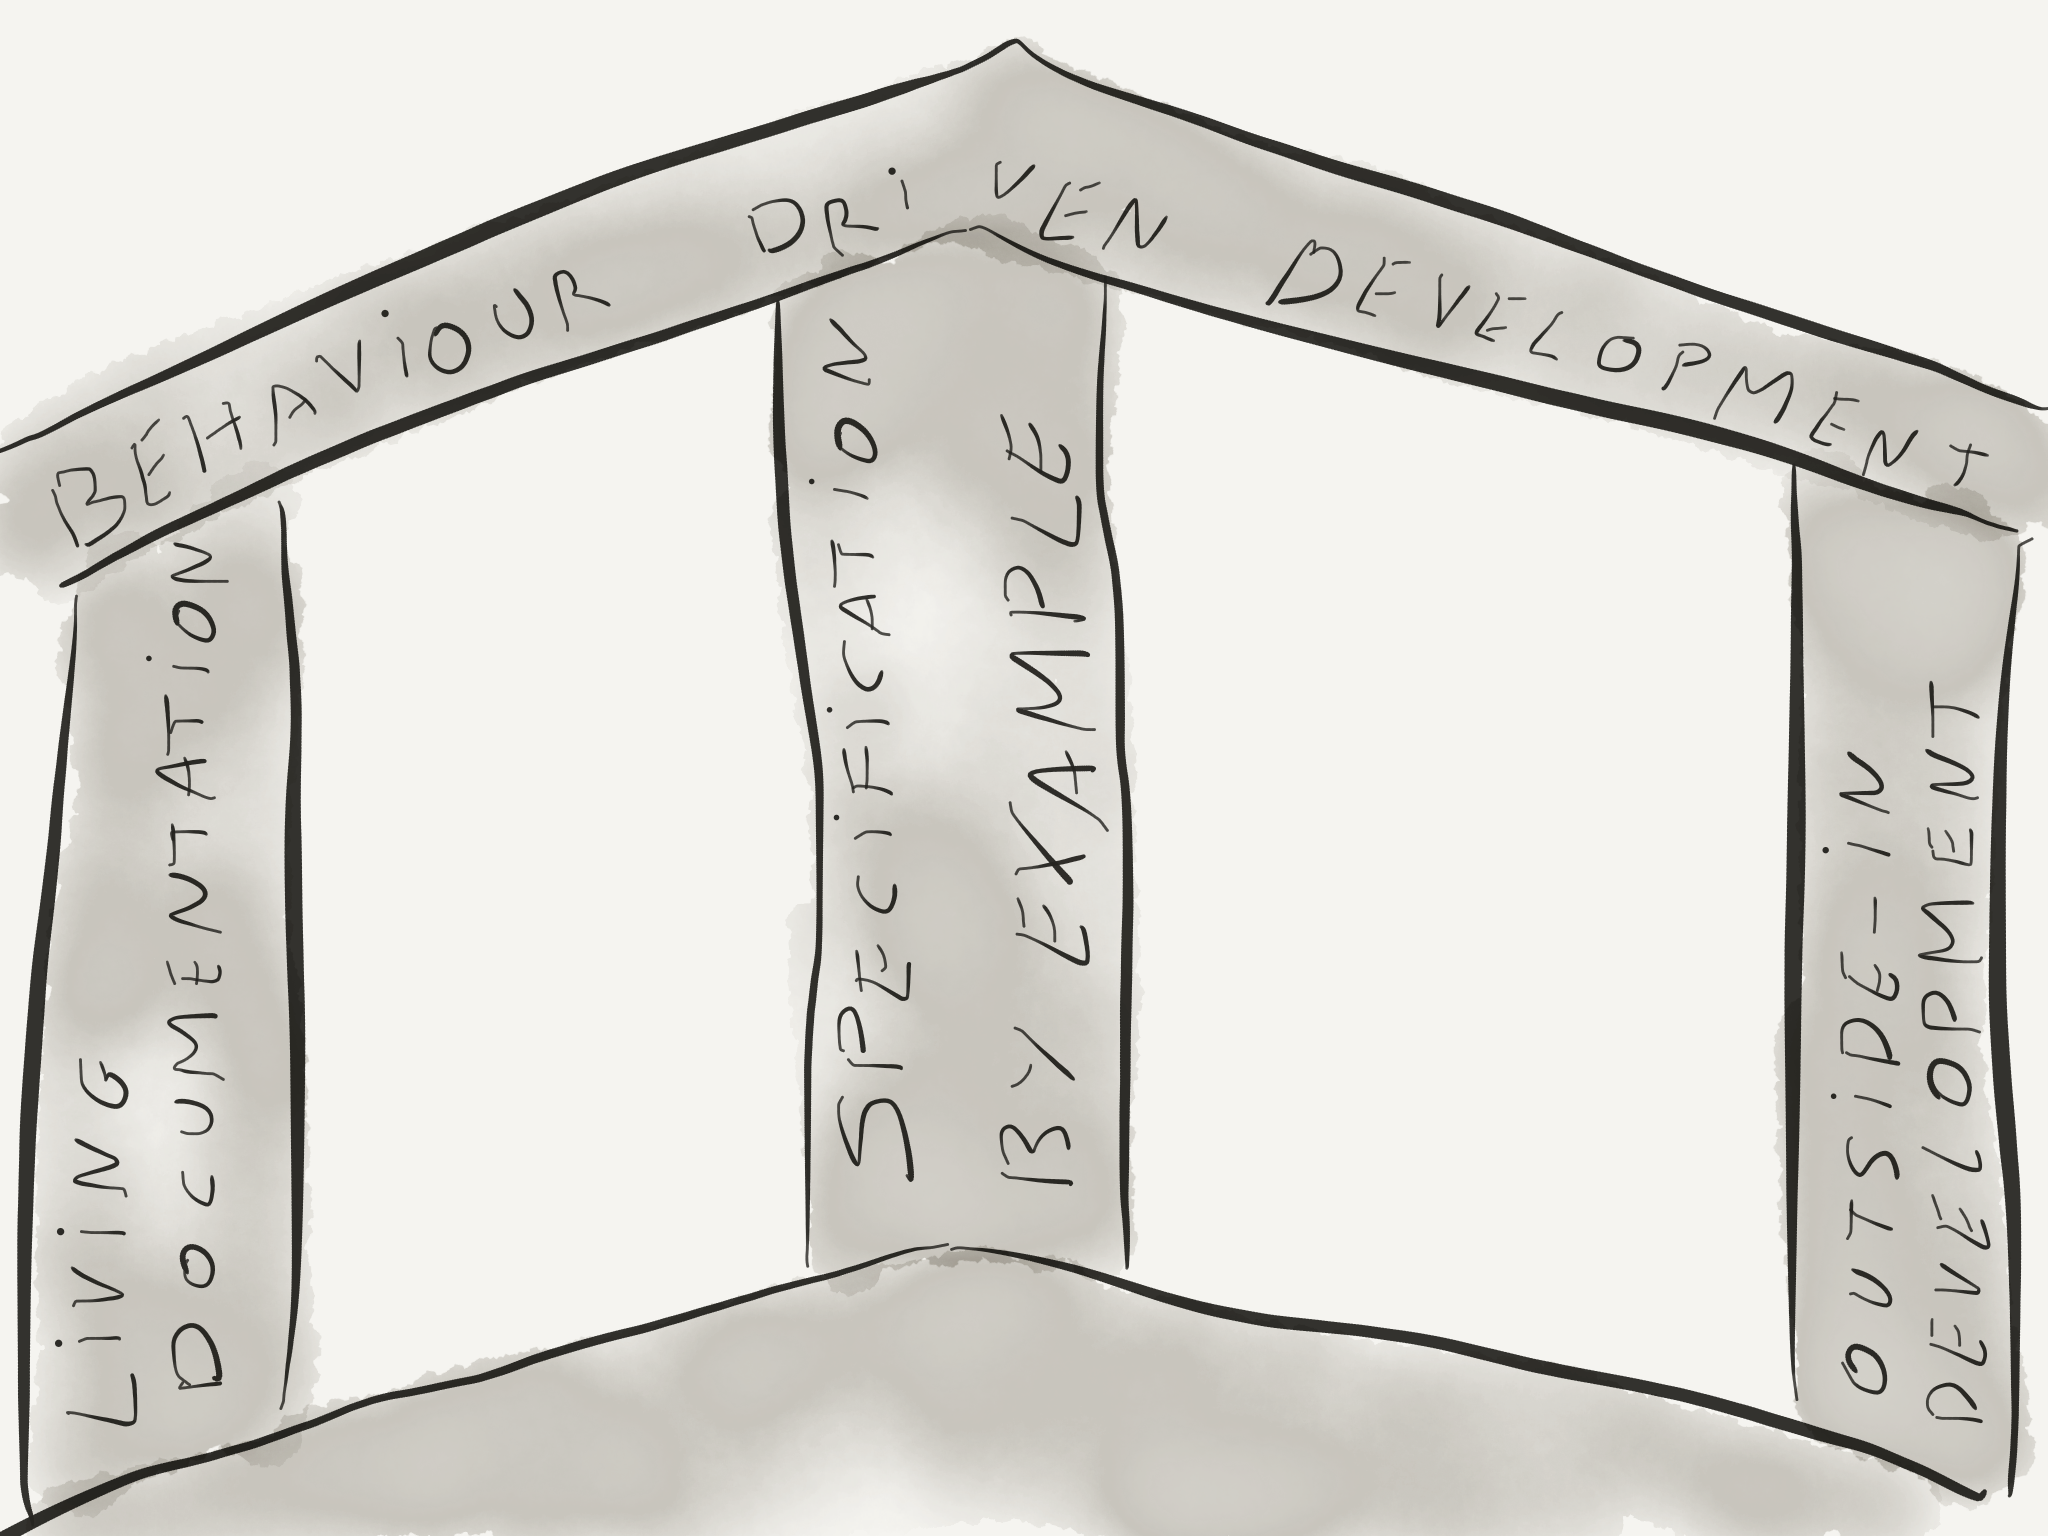 BEHAVIOUR DRiVEN DEVELOPMENT
LiViNG
DOCUMENTATiON
SPECiFiCATiON
BY EXAMPLE
OUTSiDE-iN
DEVELOPMENT